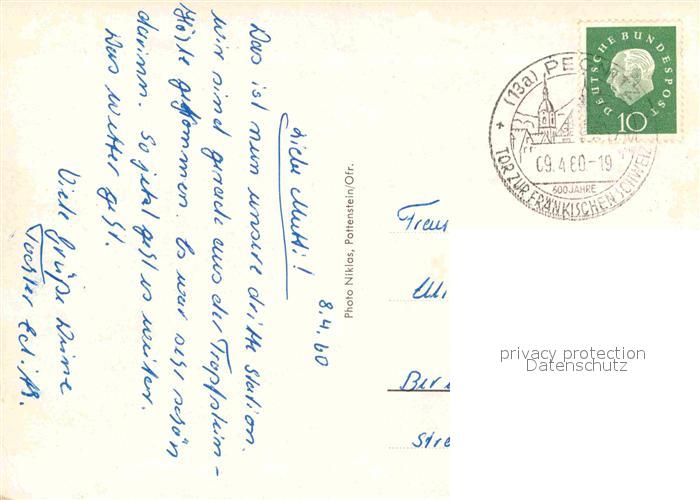 8.4.60
Liebe Mutti!
Das ist nun unsere dritte Station.
Wir sind gerade aus der Tropfstein-
höhle gekommen. Es war sehr schön
darinn. So jetzt geht es weiter.
Das Wetter geht.
Viele Grüße Deine
Tochter
Photo Niklas, Pottenstein/Ofr.
DEUTSCHE BUNDESPOST
10
(13a) PEGNITZ
09.4.60.-19
600 JAHRE
TOR ZUR FRÄNKISCHEN SCHWEIZ
Frau
privacy protection
Datenschutz